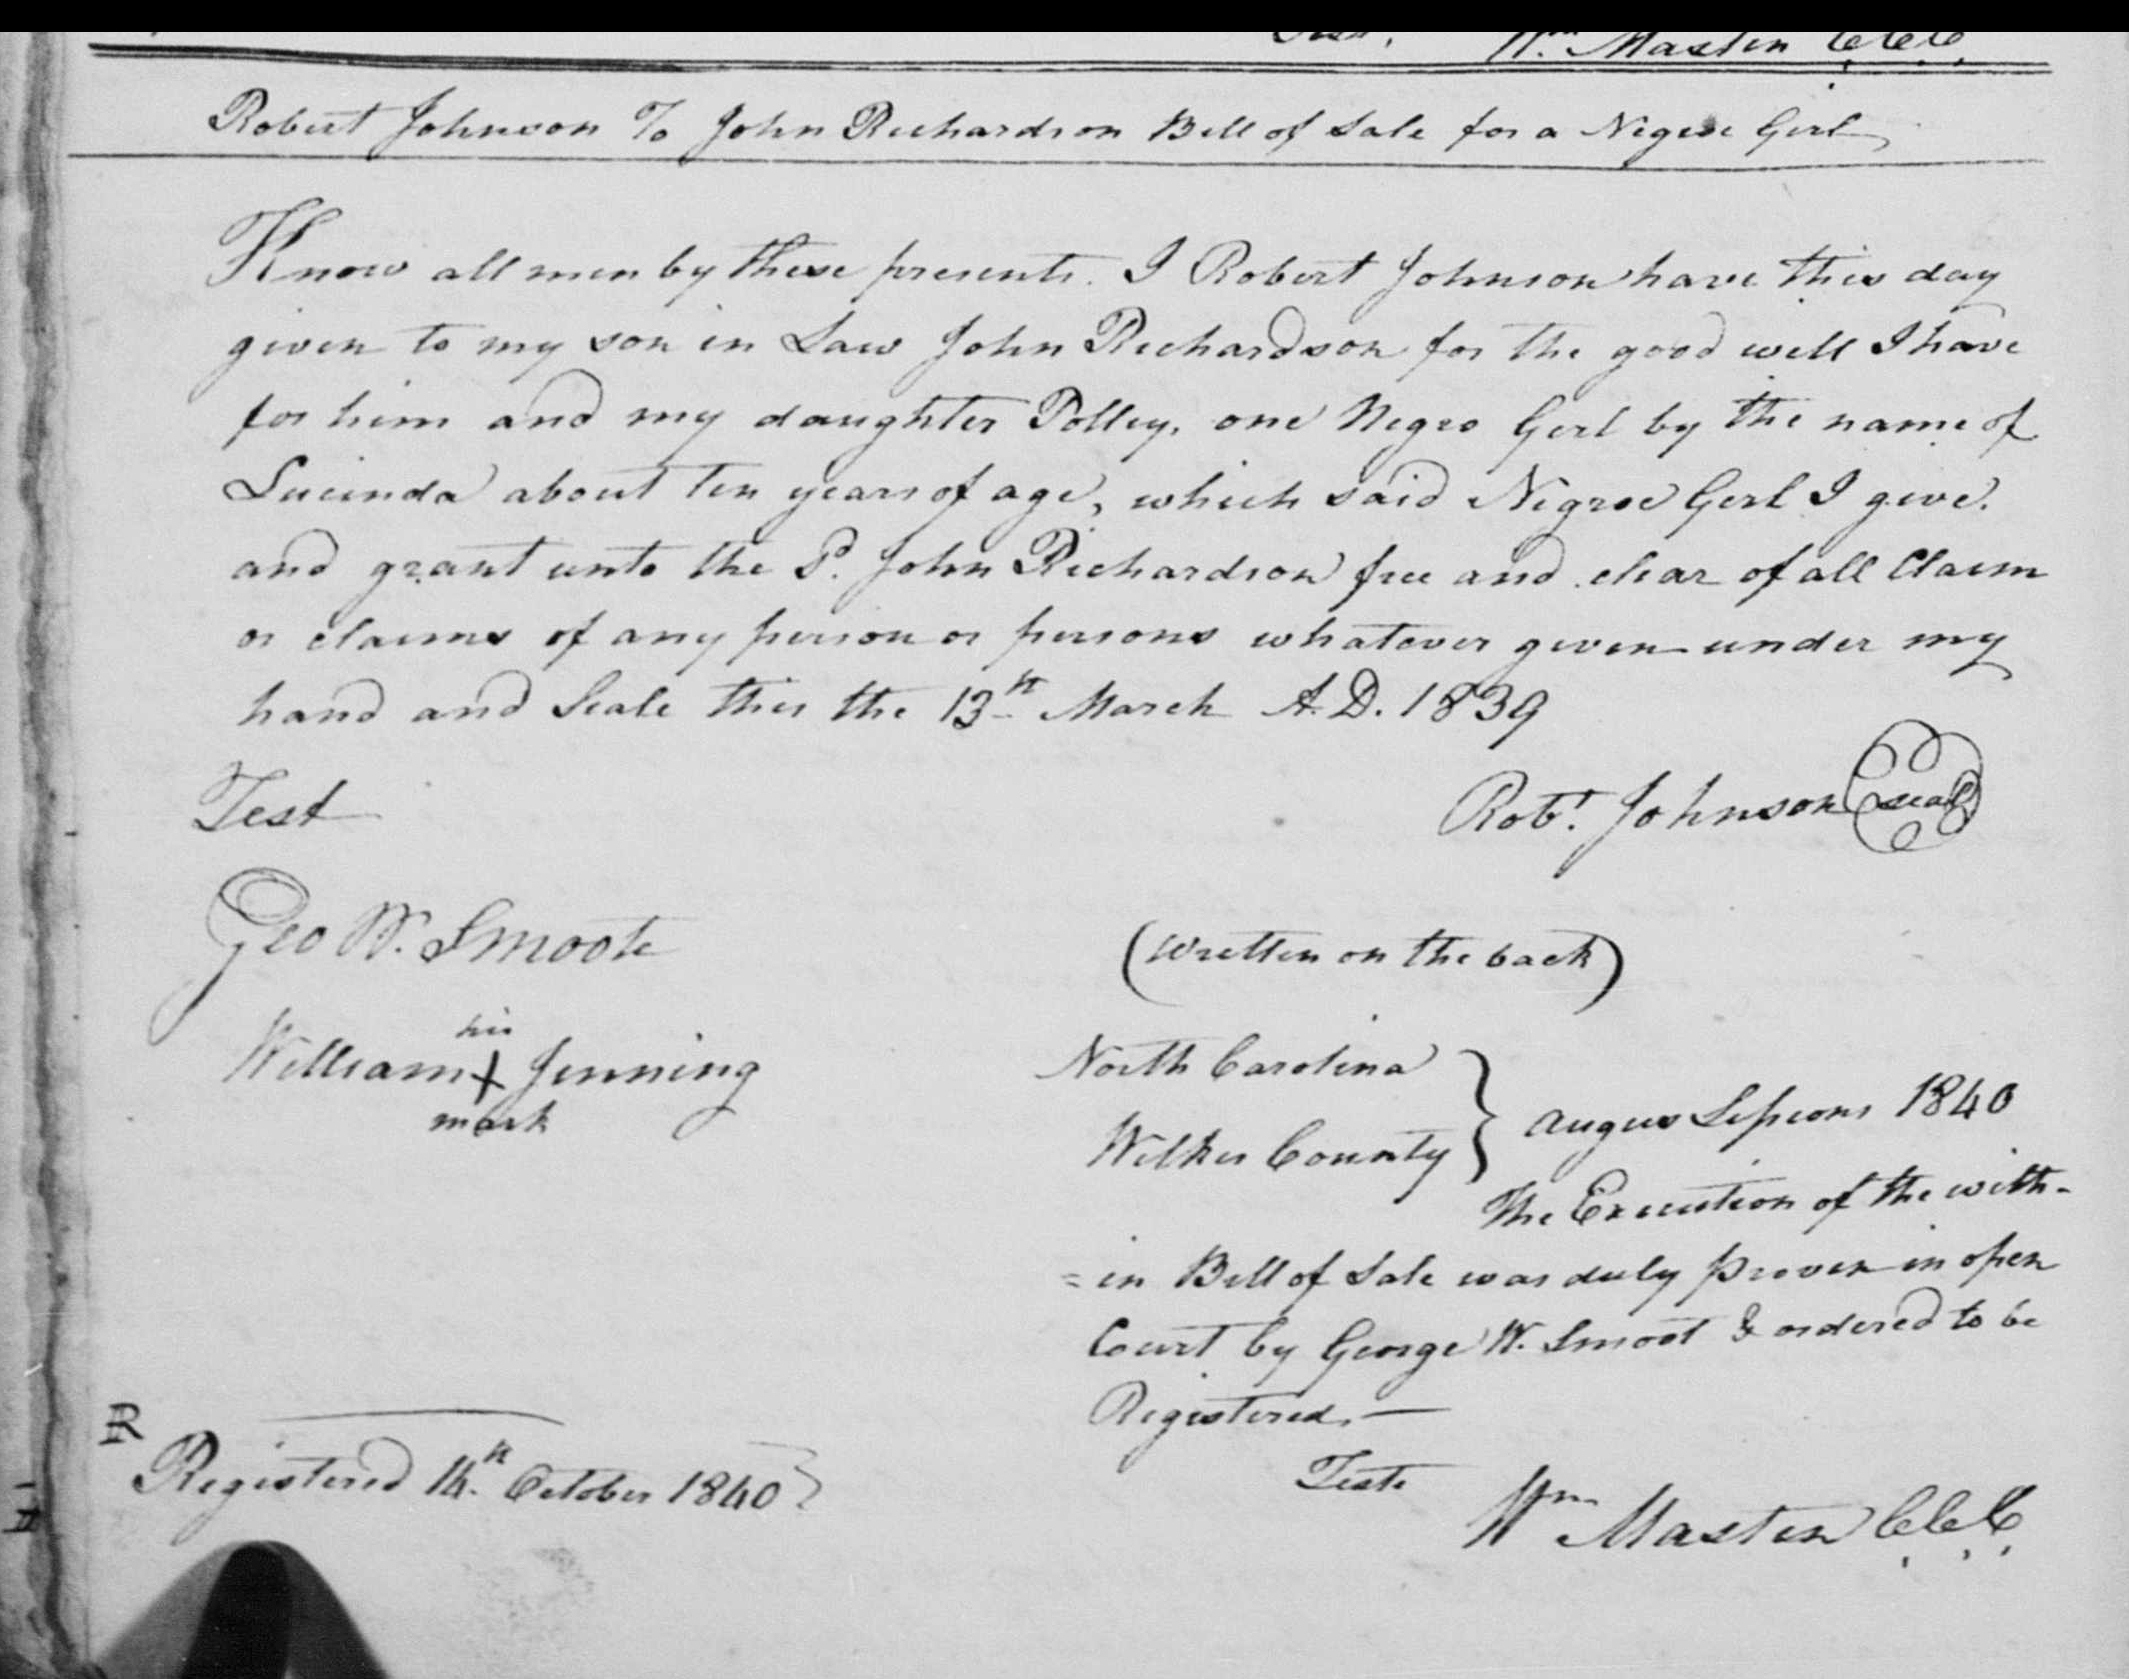 Test, Wm. Masten C.C.C.
Robert Johnson To John Richardson Bill of Sale for a Negroe Girl
Know all men by these presents. I Robert Johnson have this day
given to my son in Law John Richardson for the good will I have
for him and my daughter Polley, one Negro Girl by the name of
Lucinda about ten years of age, which said Negroe Girl I give.
and grant unto the Sd. John Richardson free and clear of all Claim
or claims of any person or persons whatever given under my
hand and Seale this the 13th March A.D. 1839
Test
Robt. Johnson (seal)
Geo W. Smoote
(written on the back)
his
William X Jenning
mark
North Carolina
Wilkes County } Augus Sessions 1840
The Execution of the with-
=in Bill of Sale was duly proven in open
Court by George W. Smoot & ordered to be
Registered. —
R
Registered 14th. October 1840
Teste
Wm Masten C.C.C.